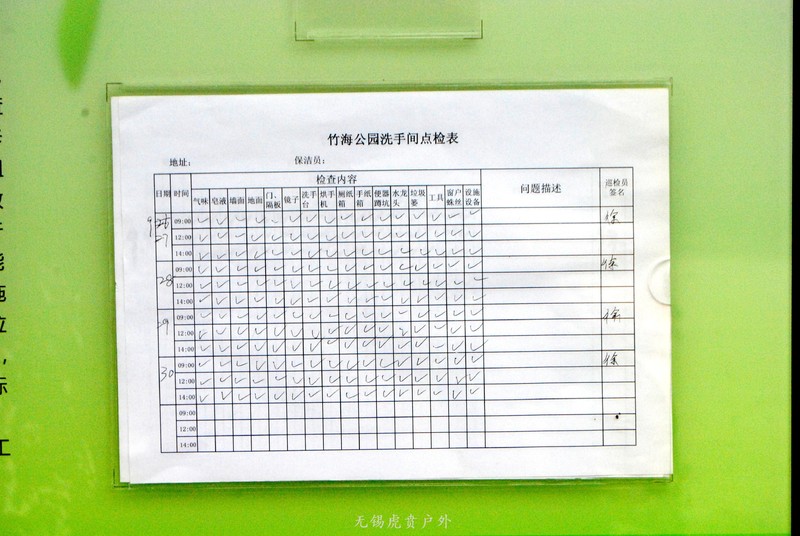 竹海公园洗手间点检表
地址： 保洁员：
日期 时间 检查内容 问题描述 巡检员签名
气味 皂液 墙面 地面 门、隔板 镜子 洗手台 烘手机 厕纸箱 手纸箱 便器蹲坑 水龙头 垃圾篓 工具 窗户蛛丝 设施设备
09:00 徐
27 12:00
14:00
09:00 徐
28 12:00
14:00
09:00 徐
29 12:00
14:00
09:00 徐
30 12:00
14:00
09:00
12:00
14:00
施
立
，
标
工
无锡虎贲户外